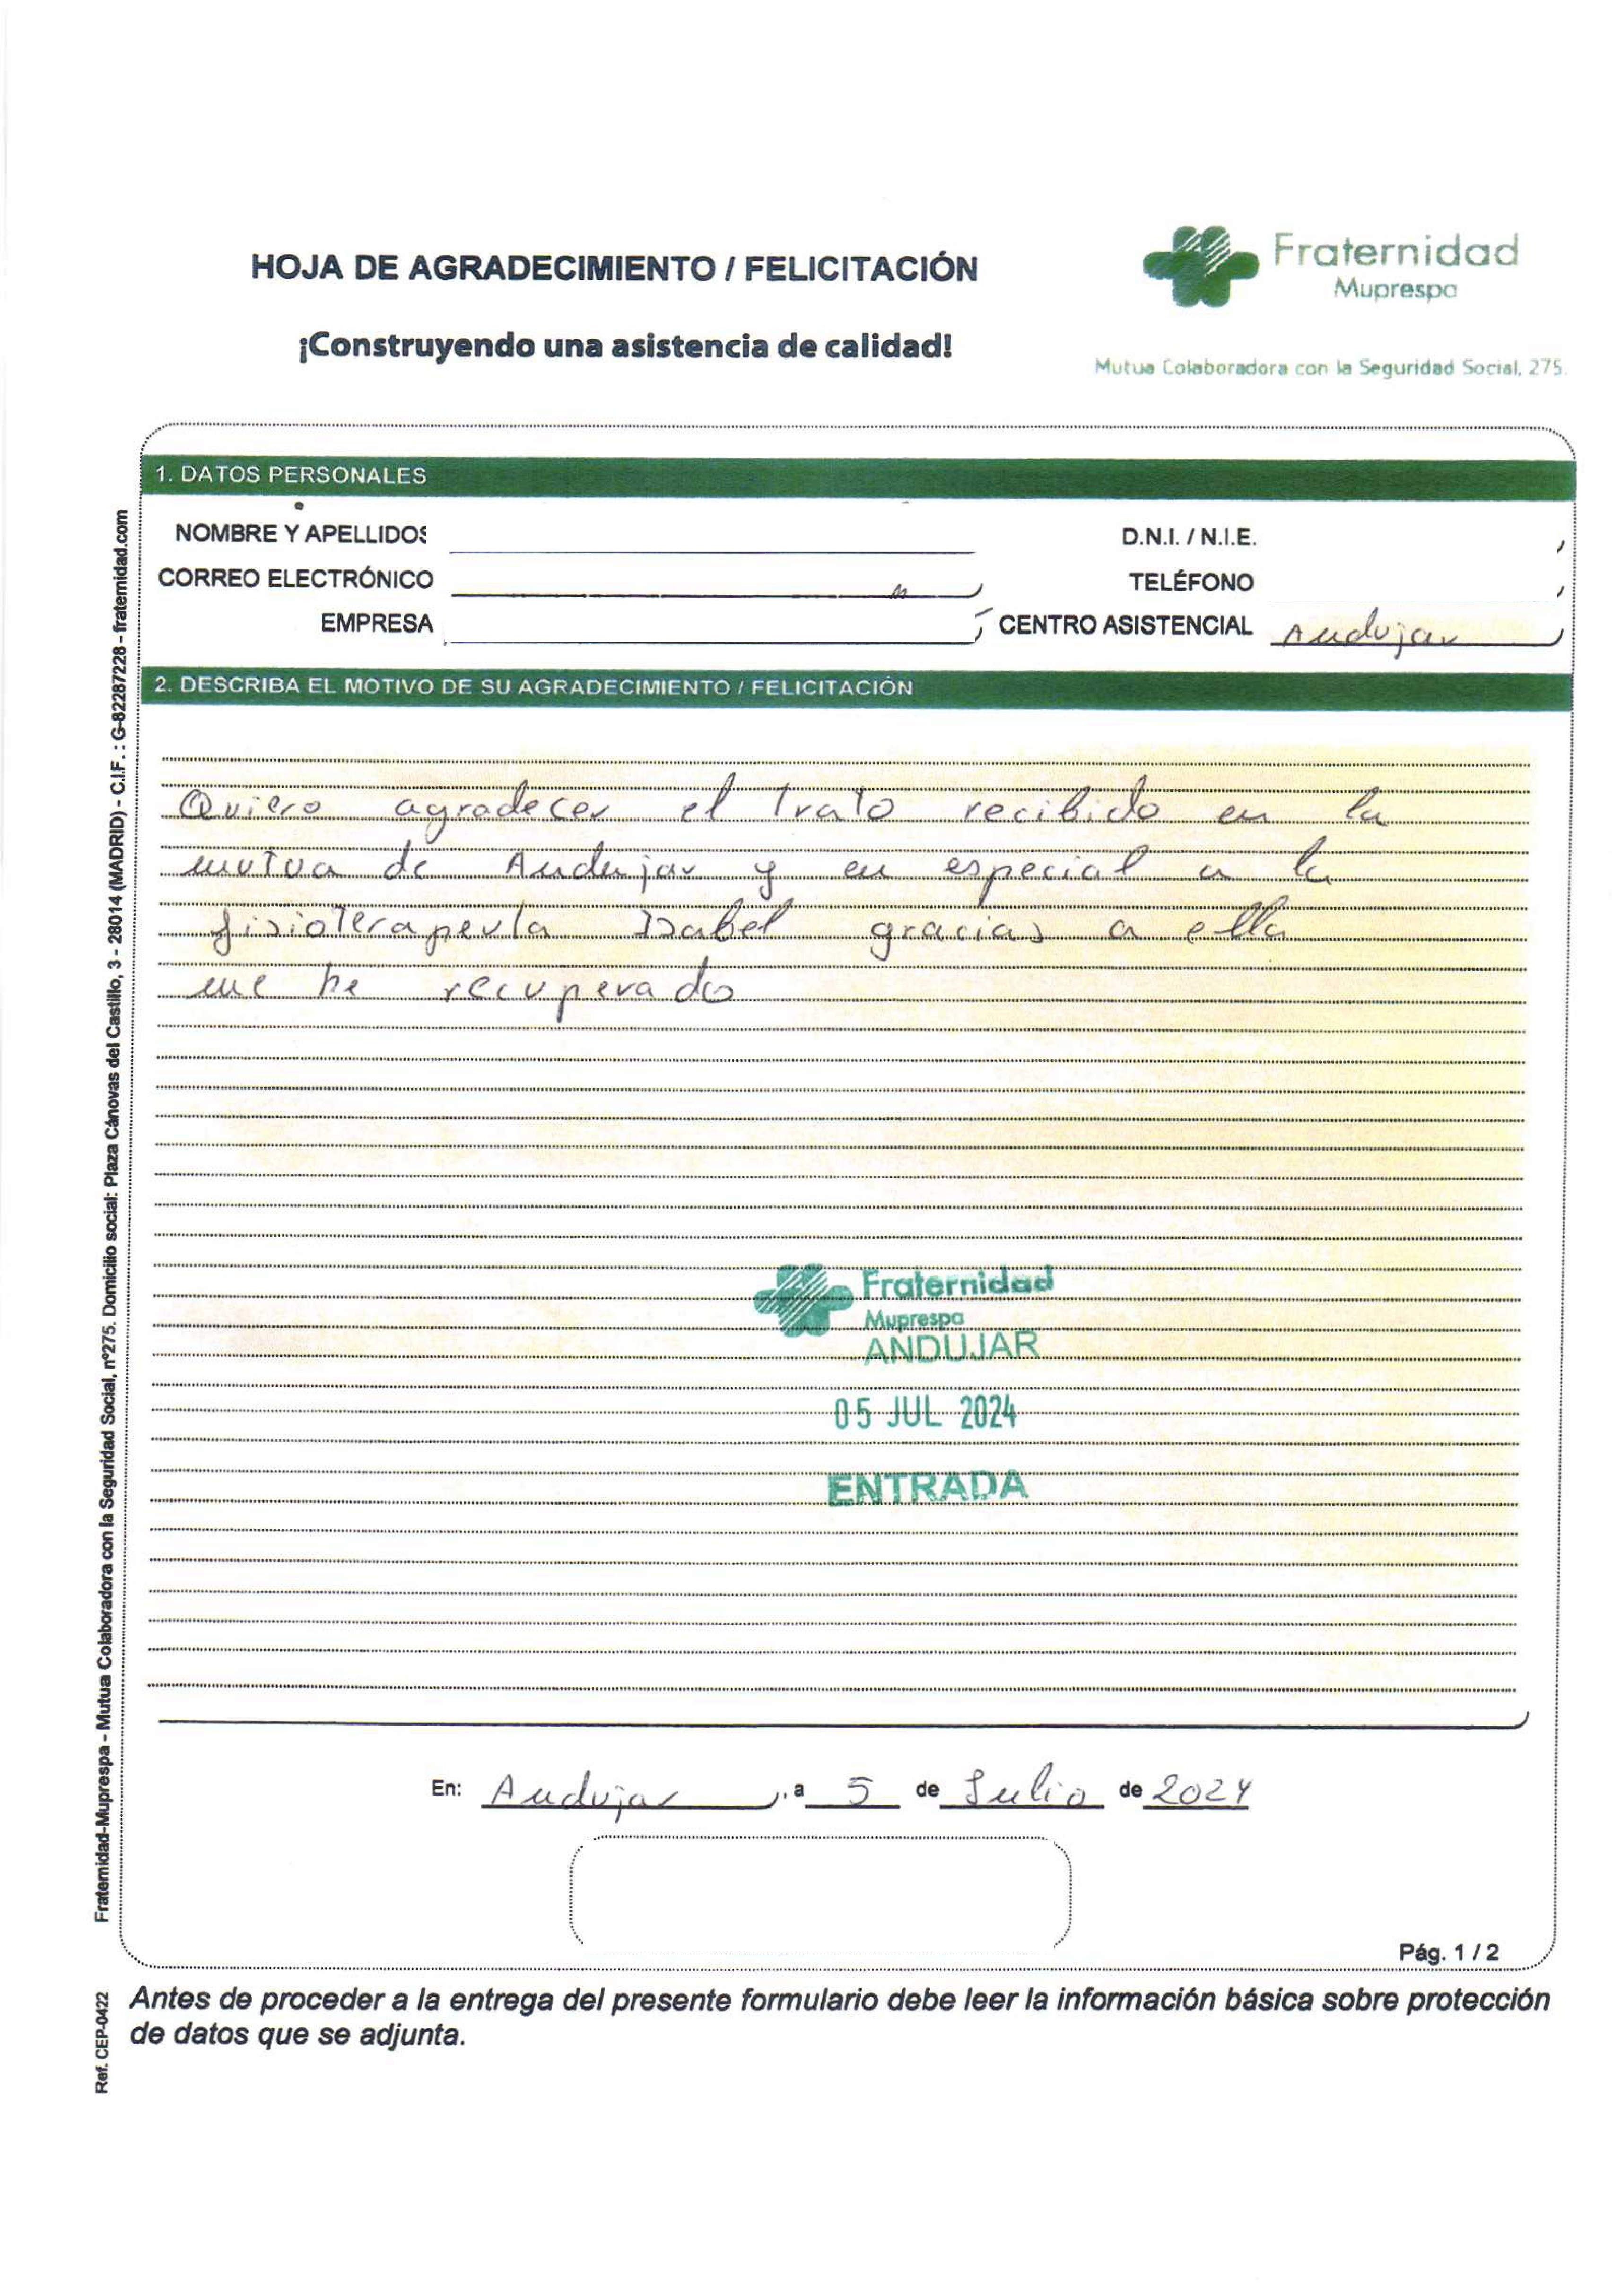 HOJA DE AGRADECIMIENTO / FELICITACIÓN
¡Construyendo una asistencia de calidad!
Fraternidad
Muprespa
Mutua Colaboradora con la Seguridad Social, 275.
1. DATOS PERSONALES
NOMBRE Y APELLIDOS
D.N.I. / N.I.E.
CORREO ELECTRÓNICO
TELÉFONO
EMPRESA
CENTRO ASISTENCIAL Andujar
2. DESCRIBA EL MOTIVO DE SU AGRADECIMIENTO / FELICITACIÓN
Quiero agradecer el trato recibido en la
mutua de Andujar y en especial a la
fisioterapeuta Isabel gracias a ella
me he recuperado
Fraternidad
Muprespa
ANDUJAR
05 JUL 2024
ENTRADA
En: Andujar, a 5 de Julio de 2024
Pág. 1 / 2
Antes de proceder a la entrega del presente formulario debe leer la información básica sobre protección
de datos que se adjunta.
Fraternidad-Muprespa - Mutua Colaboradora con la Seguridad Social, nº275. Domicilio social: Plaza Cánovas del Castillo, 3 - 28014 (MADRID) - C.I.F. : G-82287228 - fraternidad.com
Ref. CEP-0422